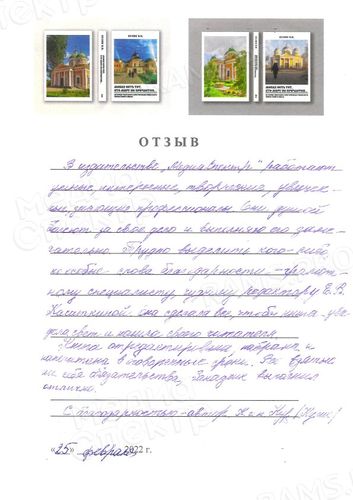 ОТЗЫВ
В издательстве „МедиаСпектр" работают
умные, интересные, творческие, увлечен-
ные, знающие профессионалы. Они душой
болеют за свое дело и выполняют его заме-
чательно. Трудно выделить кого-либо,
но особые слова благодарности – грамот-
ному специалисту, редактору Е.В.
Касаткиной. Она сделала все, чтобы книга уви-
дела свет и нашла своего читателя.
Книга отредактирована, набрана и
напечатана в оговоренные сроки. Все взятые
на себя обязательства, выполнил
отлично.
С благодарностью – автор
«25» февраля 2022 г.